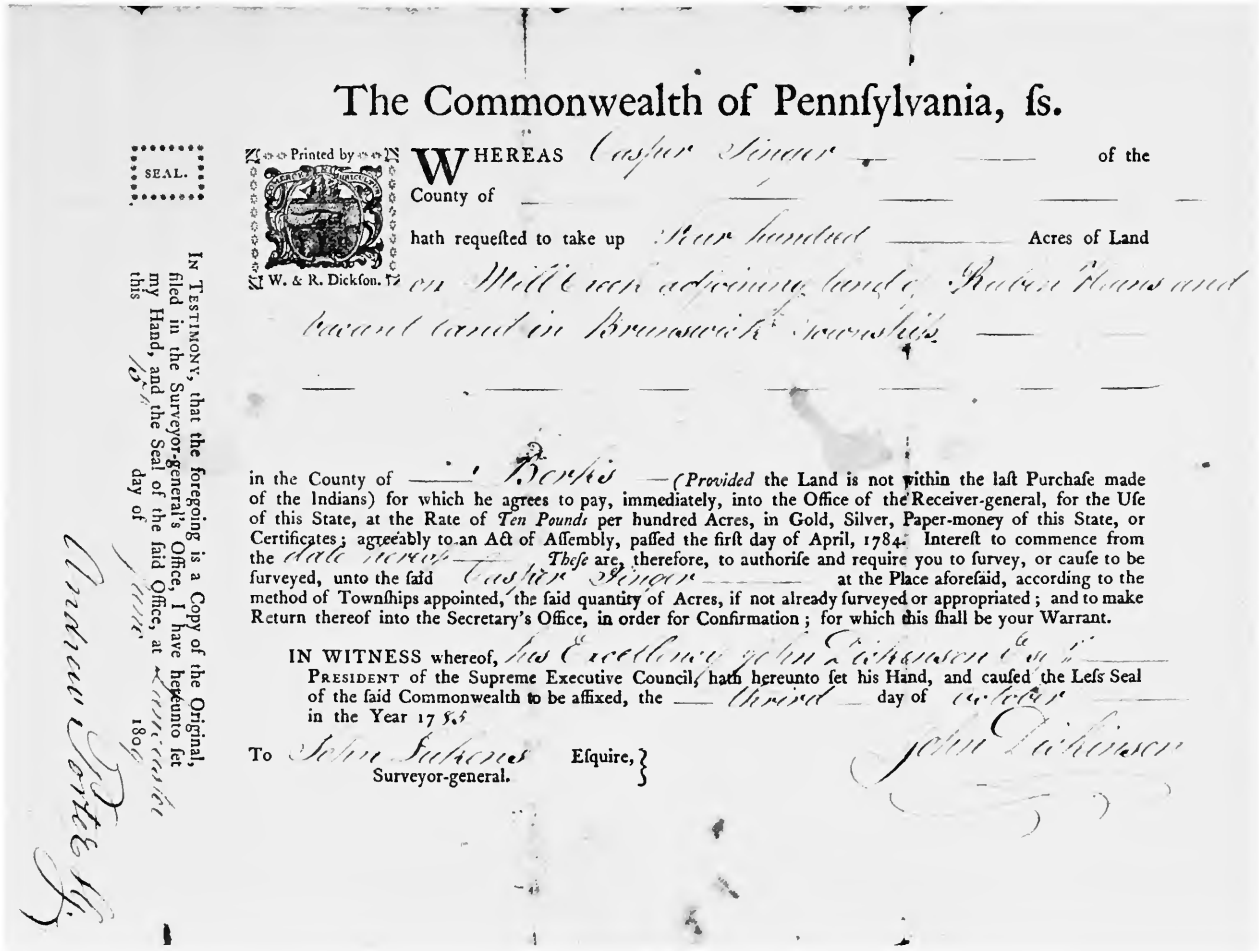 The Commonwealth of Pennſylvania, ſs.
Printed by
W. & R. Dickſon.
WHEREAS Casper Singer of the
County of
hath requeſted to take up Four hundred Acres of Land
on Mill Creek adjoining land of Ruben Hains and
vacant land in Brunswick Township
in the County of Berks (Provided the Land is not within the laſt Purchaſe made
of the Indians) for which he agrees to pay, immediately, into the Office of the Receiver-general, for the Uſe
of this State, at the Rate of Ten Pounds per hundred Acres, in Gold, Silver, Paper-money of this State, or
Certificates; agreeably to an Act of Aſſembly, paſſed the firſt day of April, 1784. Intereſt to commence from
the date hereof Theſe are, therefore, to authoriſe and require you to ſurvey, or cauſe to be
ſurveyed, unto the ſaid Casper Singer at the Place aforeſaid, according to the
method of Townſhips appointed, the ſaid quantity of Acres, if not already ſurveyed or appropriated; and to make
Return thereof into the Secretary's Office, in order for Confirmation; for which this ſhall be your Warrant.
IN WITNESS whereof, his Excellency John Dickinson Esqr
PRESIDENT of the Supreme Executive Council, hath hereunto ſet his Hand, and cauſed the Leſs Seal
of the ſaid Commonwealth to be affixed, the third day of october
in the Year 1785
John Dickinson
To John Lukens Eſquire,}
Surveyor-general.
SEAL.
IN TESTIMONY, that the foregoing is a Copy of the Original,
filed in the Surveyor-general's Office, I have hereunto ſet
my Hand, and the Seal of the ſaid Office, at Lancaster
this 15th day of June 1809
Andrew Porter S.G.